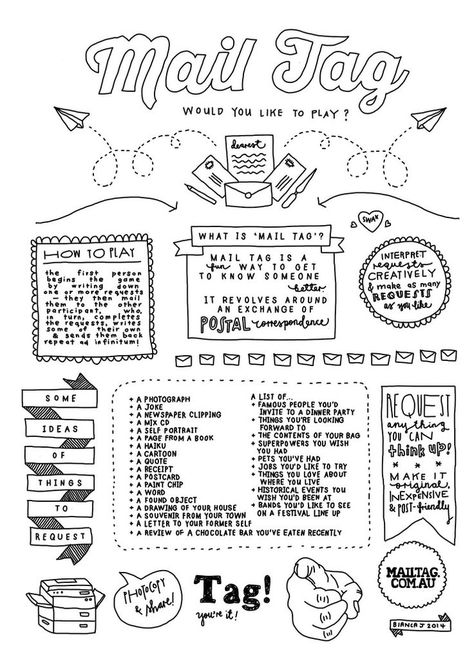 Mail Tag
WOULD YOU LIKE TO PLAY?
dearest
SWAK
HOW TO PLAY
the first person
begins the game
by writing down
one or more requests
– they then mail
them to the other
participant, who,
in turn, completes
the requests, writes
some of their own
& sends them back
repeat ad infinitum!
WHAT IS 'MAIL TAG'?
MAIL TAG IS A
fun WAY TO GET
TO KNOW SOMEONE
better
IT REVOLVES AROUND
AN EXCHANGE OF
POSTAL correspondence
INTERPRET
requests
CREATIVELY
& make as many
REQUESTS
as you like
SOME
IDEAS
OF
THINGS
TO
REQUEST
+ A PHOTOGRAPH
+ A JOKE
+ A NEWSPAPER CLIPPING
+ A MIX CD
+ A SELF PORTRAIT
+ A PAGE FROM A BOOK
+ A HAIKU
+ A CARTOON
+ A QUOTE
+ A RECEIPT
+ A POSTCARD
+ A PAINT CHIP
+ A WORD
+ A FOUND OBJECT
+ A DRAWING OF YOUR HOUSE
+ A SOUVENIR FROM YOUR TOWN
+ A LETTER TO YOUR FORMER SELF
+ A REVIEW OF A CHOCOLATE BAR YOU'VE EATEN RECENTLY
A LIST OF...
+ FAMOUS PEOPLE YOU'D
INVITE TO A DINNER PARTY
+ THINGS YOU'RE LOOKING
FORWARD TO
+ THE CONTENTS OF YOUR BAG
+ SUPERPOWERS YOU WISH
YOU HAD
+ PETS YOU'VE HAD
+ JOBS YOU'D LIKE TO TRY
+ THINGS YOU LOVE ABOUT
WHERE YOU LIVE
+ HISTORICAL EVENTS YOU
WISH YOU'D BEEN AT
+ BANDS YOU'D LIKE TO SEE
ON A FESTIVAL LINE UP
REQUEST
anything
YOU CAN
think up!
MAKE IT
original,
INEXPENSIVE
& POST-friendly
PHOTOCOPY
& share!
Tag!
you're it!
MAILTAG.
COM.AU
BIANCA J 2014